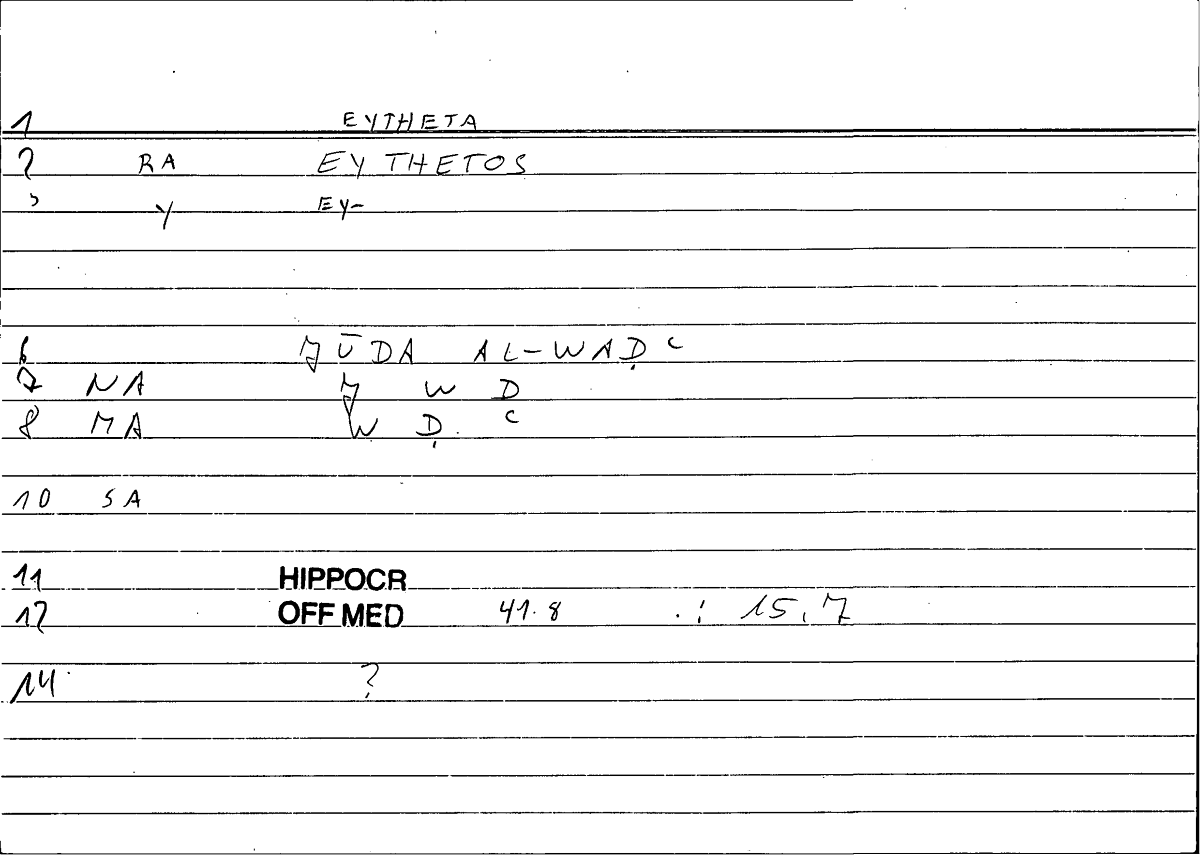 1 EYTHETA
2 RA EYTHETOS
3 Y EY-
6 ǦŪDA AL-WAḌ ʿ
7 NA Ǧ W D
8 MA W Ḍ ʿ
10 SA
11 HIPPOCR
12 OFF MED 41.8 .: 15,7
14 ?